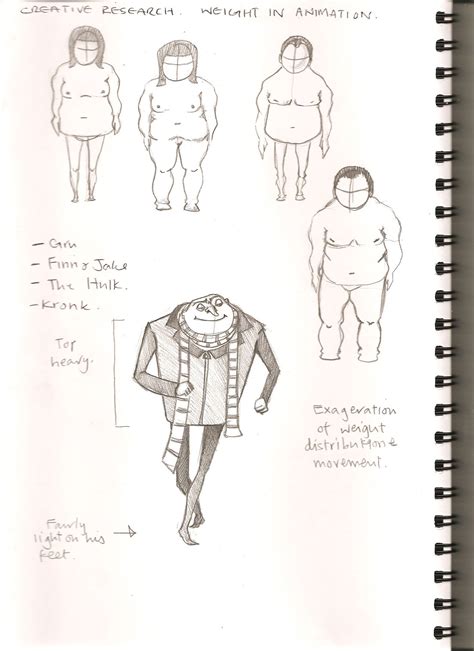 CREATIVE RESEARCH. WEIGHT IN ANIMATION.
- Gru
- Finn & Jake
- The Hulk.
- Kronk.
Top
heavy.
Exageration
of weight
distribution &
movement.
Fairly
light on his
feet.